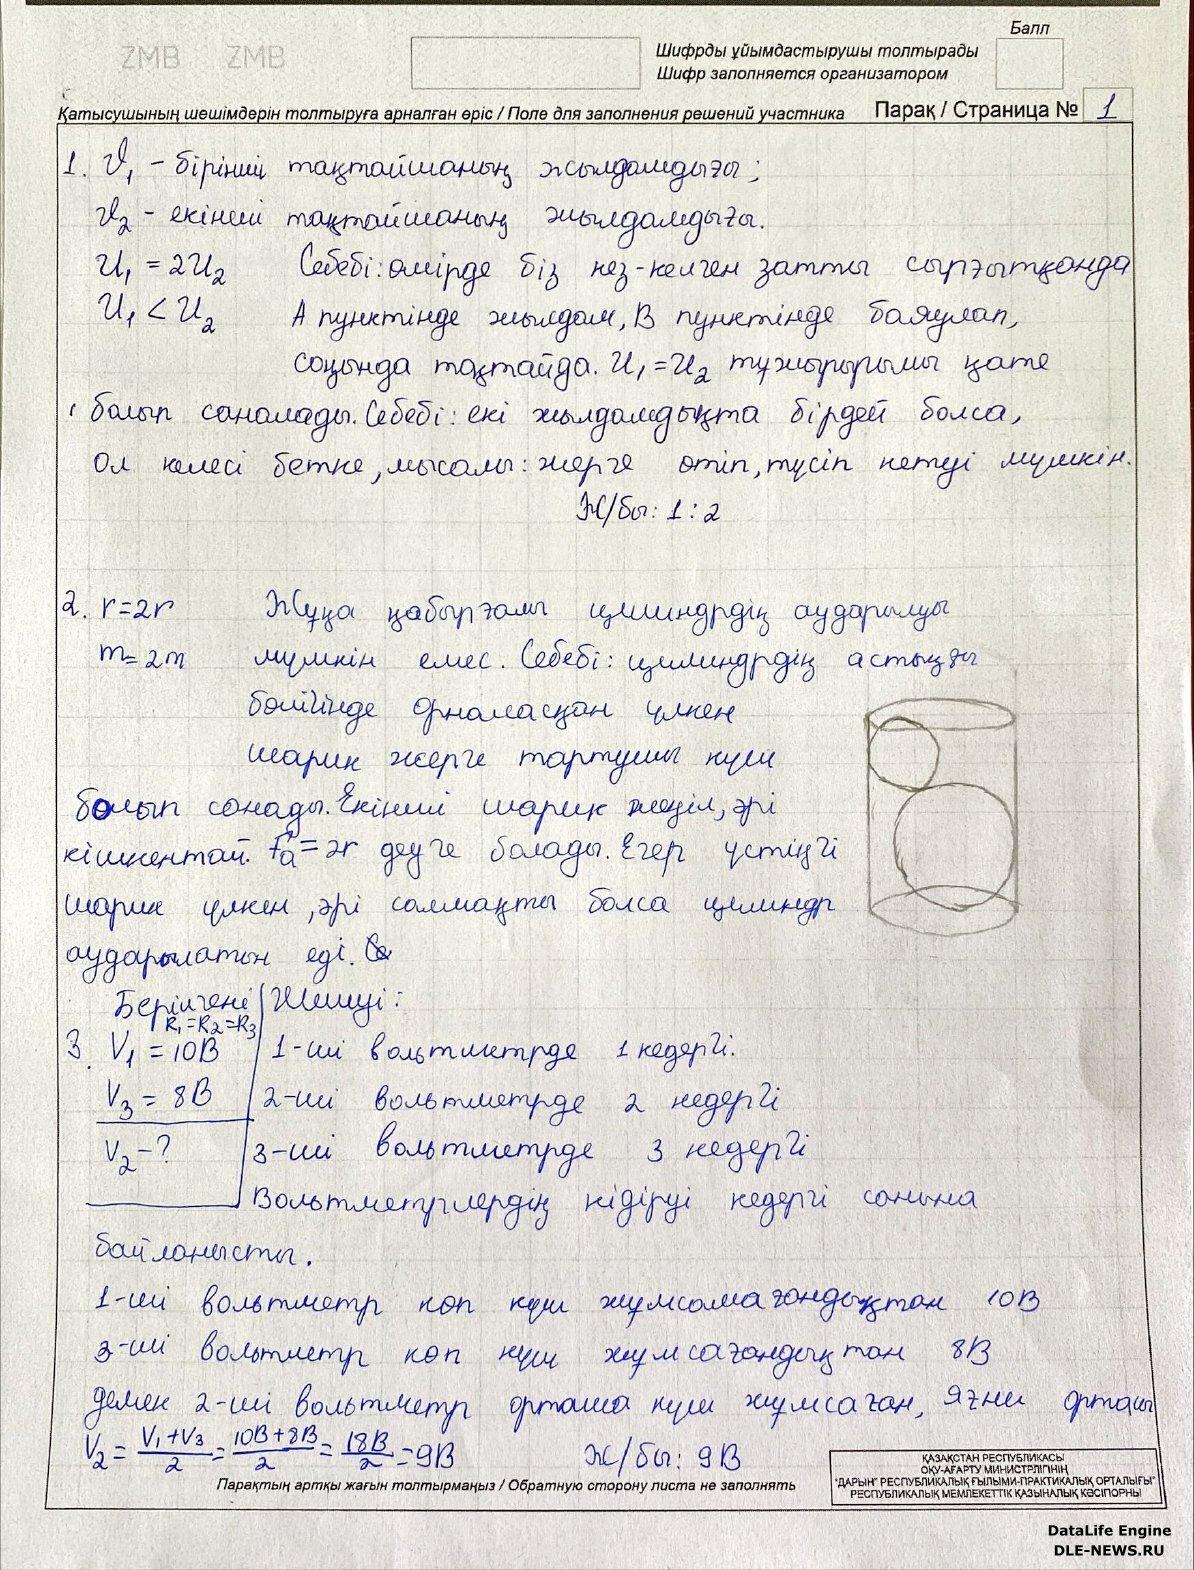 ZMB ZMB
Балл
Шифрды ұйымдастырушы толтырады
Шифр заполняется организатором
Қатысушының шешімдерін толтыруға арналған өріс / Поле для заполнения решений участника
Парақ / Страница № 1
1. υ₁ - бірінші тақтайшаның жылдамдығы;
υ₂ - екінші тақтайшаның жылдамдығы.
U₁ = 2U₂ Себебі: өмірде біз кез-келген затты сырғытқанда
U₁ < U₂ А пунктінде жылдам, В пунктінде баяулап,
соңында тоқтайда. U₁ = U₂ тұжырырымы қате
болып саналады. Себебі: екі жылдамдықта бірдей болса,
ол келесі бетке, мысалы: жерге өтіп, түсіп кетуі мүмкін.
Ж/бы: 1:2
2. r=2r Жұқа қабырғалы цилиндрдің аударылуы
m=2m мүмкін емес. Себебі: цилиндрдің астыңғы
бөлігінде орналасқан үлкен
шарик жерге тартушы күш
болып санады. Екінші шарик жеңіл, әрі
кішкентай. Fₐ = 2r деуге болады. Егер үстіңгі
шарик үлкен, әрі салмақты болса цилиндр
аударылатын еді.
Берілгені Шешуі:
R₁=R₂=R₃
3. V₁ = 10В 1-ші вольтметрде 1 кедергі.
V₃ = 8В 2-ші вольтметрде 2 кедергі
V₂ - ? 3-ші вольтметрде 3 кедергі
Вольтметрлердің кідіруі кедергі санына
байланысты.
1-ші вольтметр көп күш жұмсамағандықтан 10В
3-ші вольтметр көп күш жұмсағандықтан 8В
демек 2-ші вольтметр орташа күш жұмсаған, яғни ортасы
V₂ = (V₁+V₃)/2 = (10В+8В)/2 = 18В/2 = 9В Ж/бы: 9В
Парақтың артқы жағын толтырмаңыз / Обратную сторону листа не заполнять
ҚАЗАҚСТАН РЕСПУБЛИКАСЫ
ОҚУ-АҒАРТУ МИНИСТРЛІГІНІҢ
"ДАРЫН" РЕСПУБЛИКАЛЫҚ ҒЫЛЫМИ-ПРАКТИКАЛЫҚ ОРТАЛЫҒЫ"
РЕСПУБЛИКАЛЫҚ МЕМЛЕКЕТТІК ҚАЗЫНАЛЫҚ КӘСІПОРНЫ
DataLife Engine
DLE-NEWS.RU